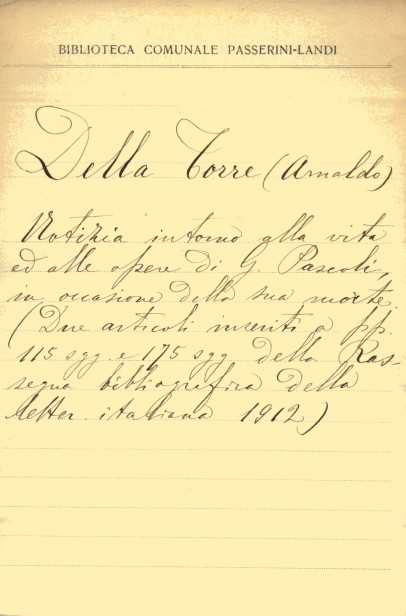 BIBLIOTECA COMUNALE PASSERINI-LANDI
Della Torre (Arnaldo)
Notizia intorno alla vita
ed alle opere di G. Pascoli,
in occasione della sua morte.
(Due articoli inseriti a pp.
115 sgg. e 175 sgg. della Ras-
segna bibliografica della
letter. italiana 1912)